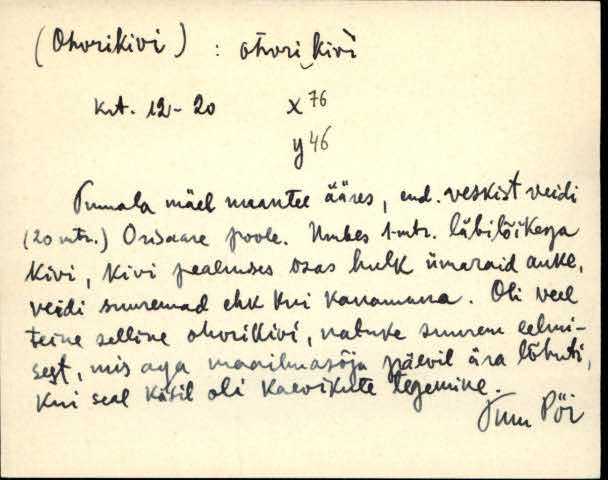 (Ohvrikivi) : ohvri‿kivi
krt. 12-20 x 76
y 46
Tumala mäel maantee ääres, end. veskist veidi
(20 mtr.) Orisaare poole. Umbes 1-mtr. läbilõikega
kivi, kivi pealmises osas hulk ümaraid auke,
veidi suuremad ehk kui kanamuna. Oli veel
teine selline ohvrikivi, natuke suurem eelmi-
sest, mis aga maailmasõja päevil ära lõhuti,
kui seal käsil oli kaevikute tegemine.
Pöi